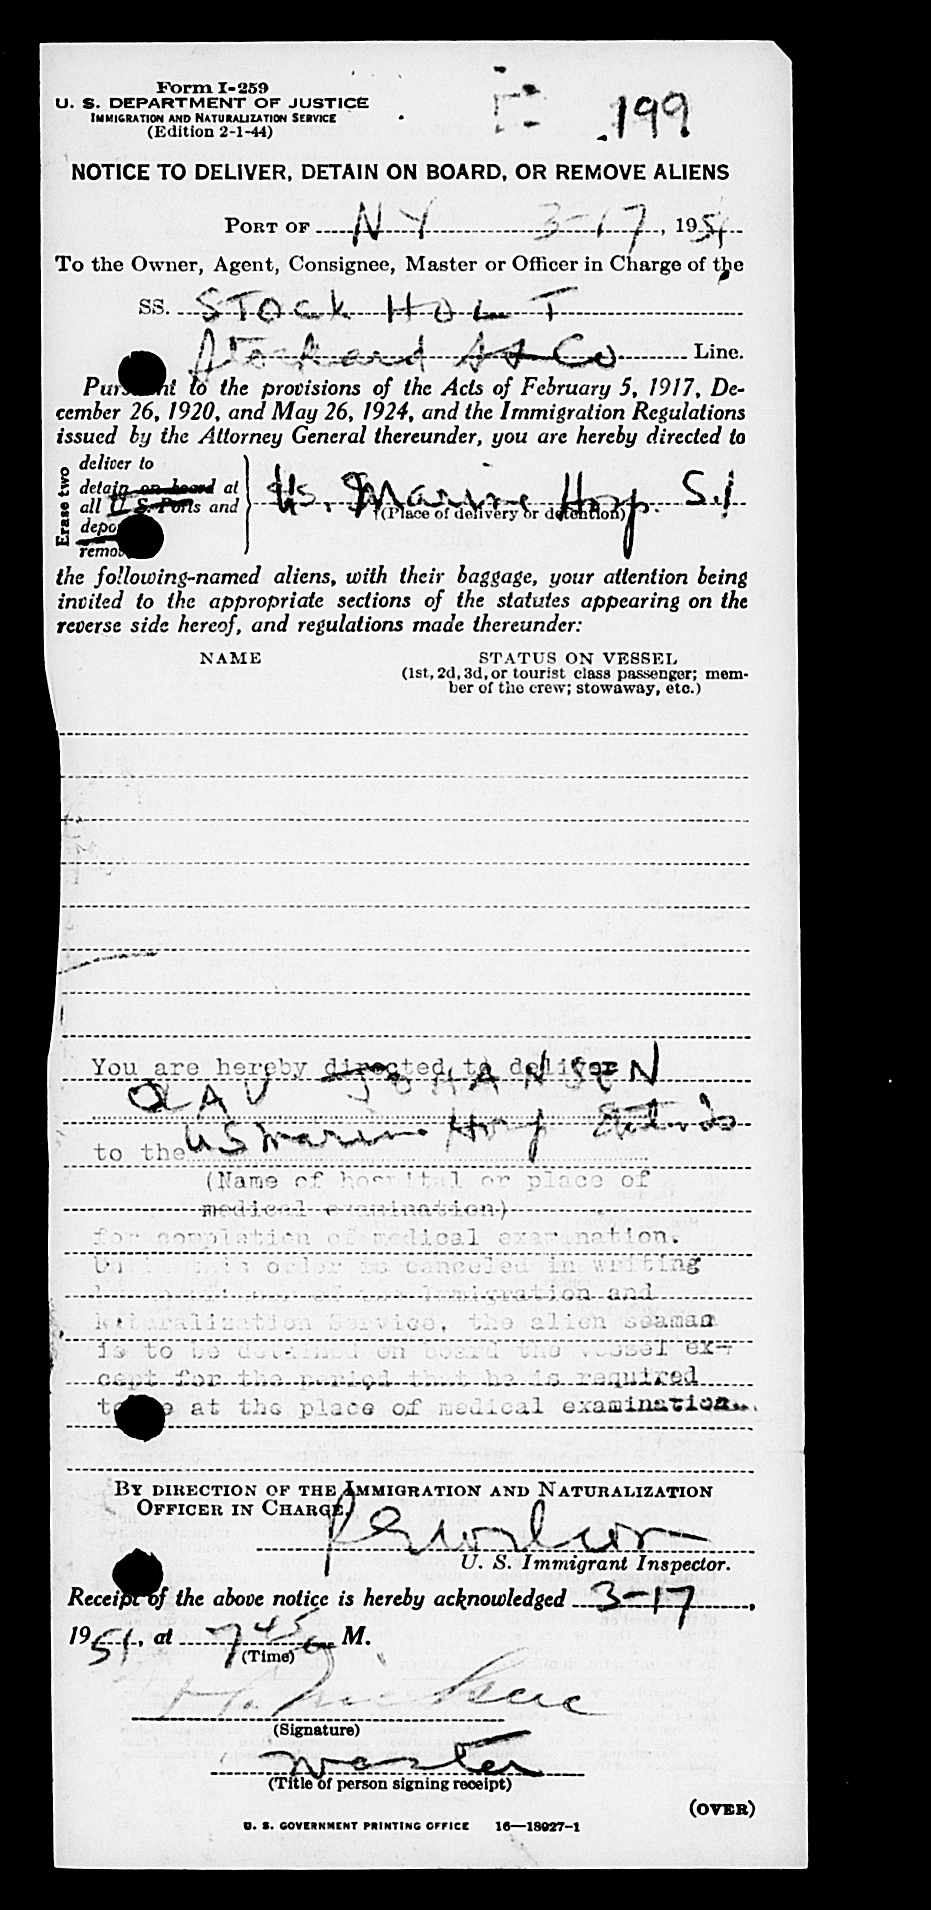 Form I-259
U. S. DEPARTMENT OF JUSTICE
IMMIGRATION AND NATURALIZATION SERVICE
(Edition 2-1-44)
199
NOTICE TO DELIVER, DETAIN ON BOARD, OR REMOVE ALIENS
PORT OF N Y 3-17, 1951
To the Owner, Agent, Consignee, Master or Officer in Charge of the
SS. STOCKHOLT
Stockard SS Co Line.
Pursuant to the provisions of the Acts of February 5, 1917, De-
cember 26, 1920, and May 26, 1924, and the Immigration Regulations
issued by the Attorney General thereunder, you are hereby directed to
Erase two
deliver to
detain on board at
all U. S. Ports and
depo
remov
US. Marine Hosp. S.I
†(Place of delivery or detention)
the following-named aliens, with their baggage, your attention being
invited to the appropriate sections of the statutes appearing on the
reverse side hereof, and regulations made thereunder:
NAME
STATUS ON VESSEL
(1st, 2d, 3d, or tourist class passenger; mem-
ber of the crew; stowaway, etc.)
You are hereby directed to deliver
OLAV JOHANSEN
to the US Marine Hosp
(Name of hospital or place of
medical examination)
for completion of medical examination.
Until this order is canceled in writing
of the Immigration and
Naturalization Service, the alien seaman
is to be detained on board the vessel ex-
cept for the period that he is required
to be at the place of medical examination.
BY DIRECTION OF THE IMMIGRATION AND NATURALIZATION
OFFICER IN CHARGE,
U. S. Immigrant Inspector.
Receipt of the above notice is hereby acknowledged 3-17,
1951, at 7 45 a M.
(Time)
(Signature)
master
(Title of person signing receipt)
(OVER)
U. S. GOVERNMENT PRINTING OFFICE 16—18027-1